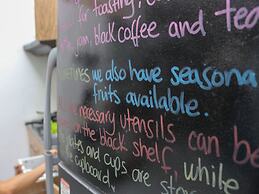 for toasting,
jam, black coffee and tea
we also have seasona
fruits available.
necessary utensils can be
on the black shelf, while
plates and cups are st
cupboard